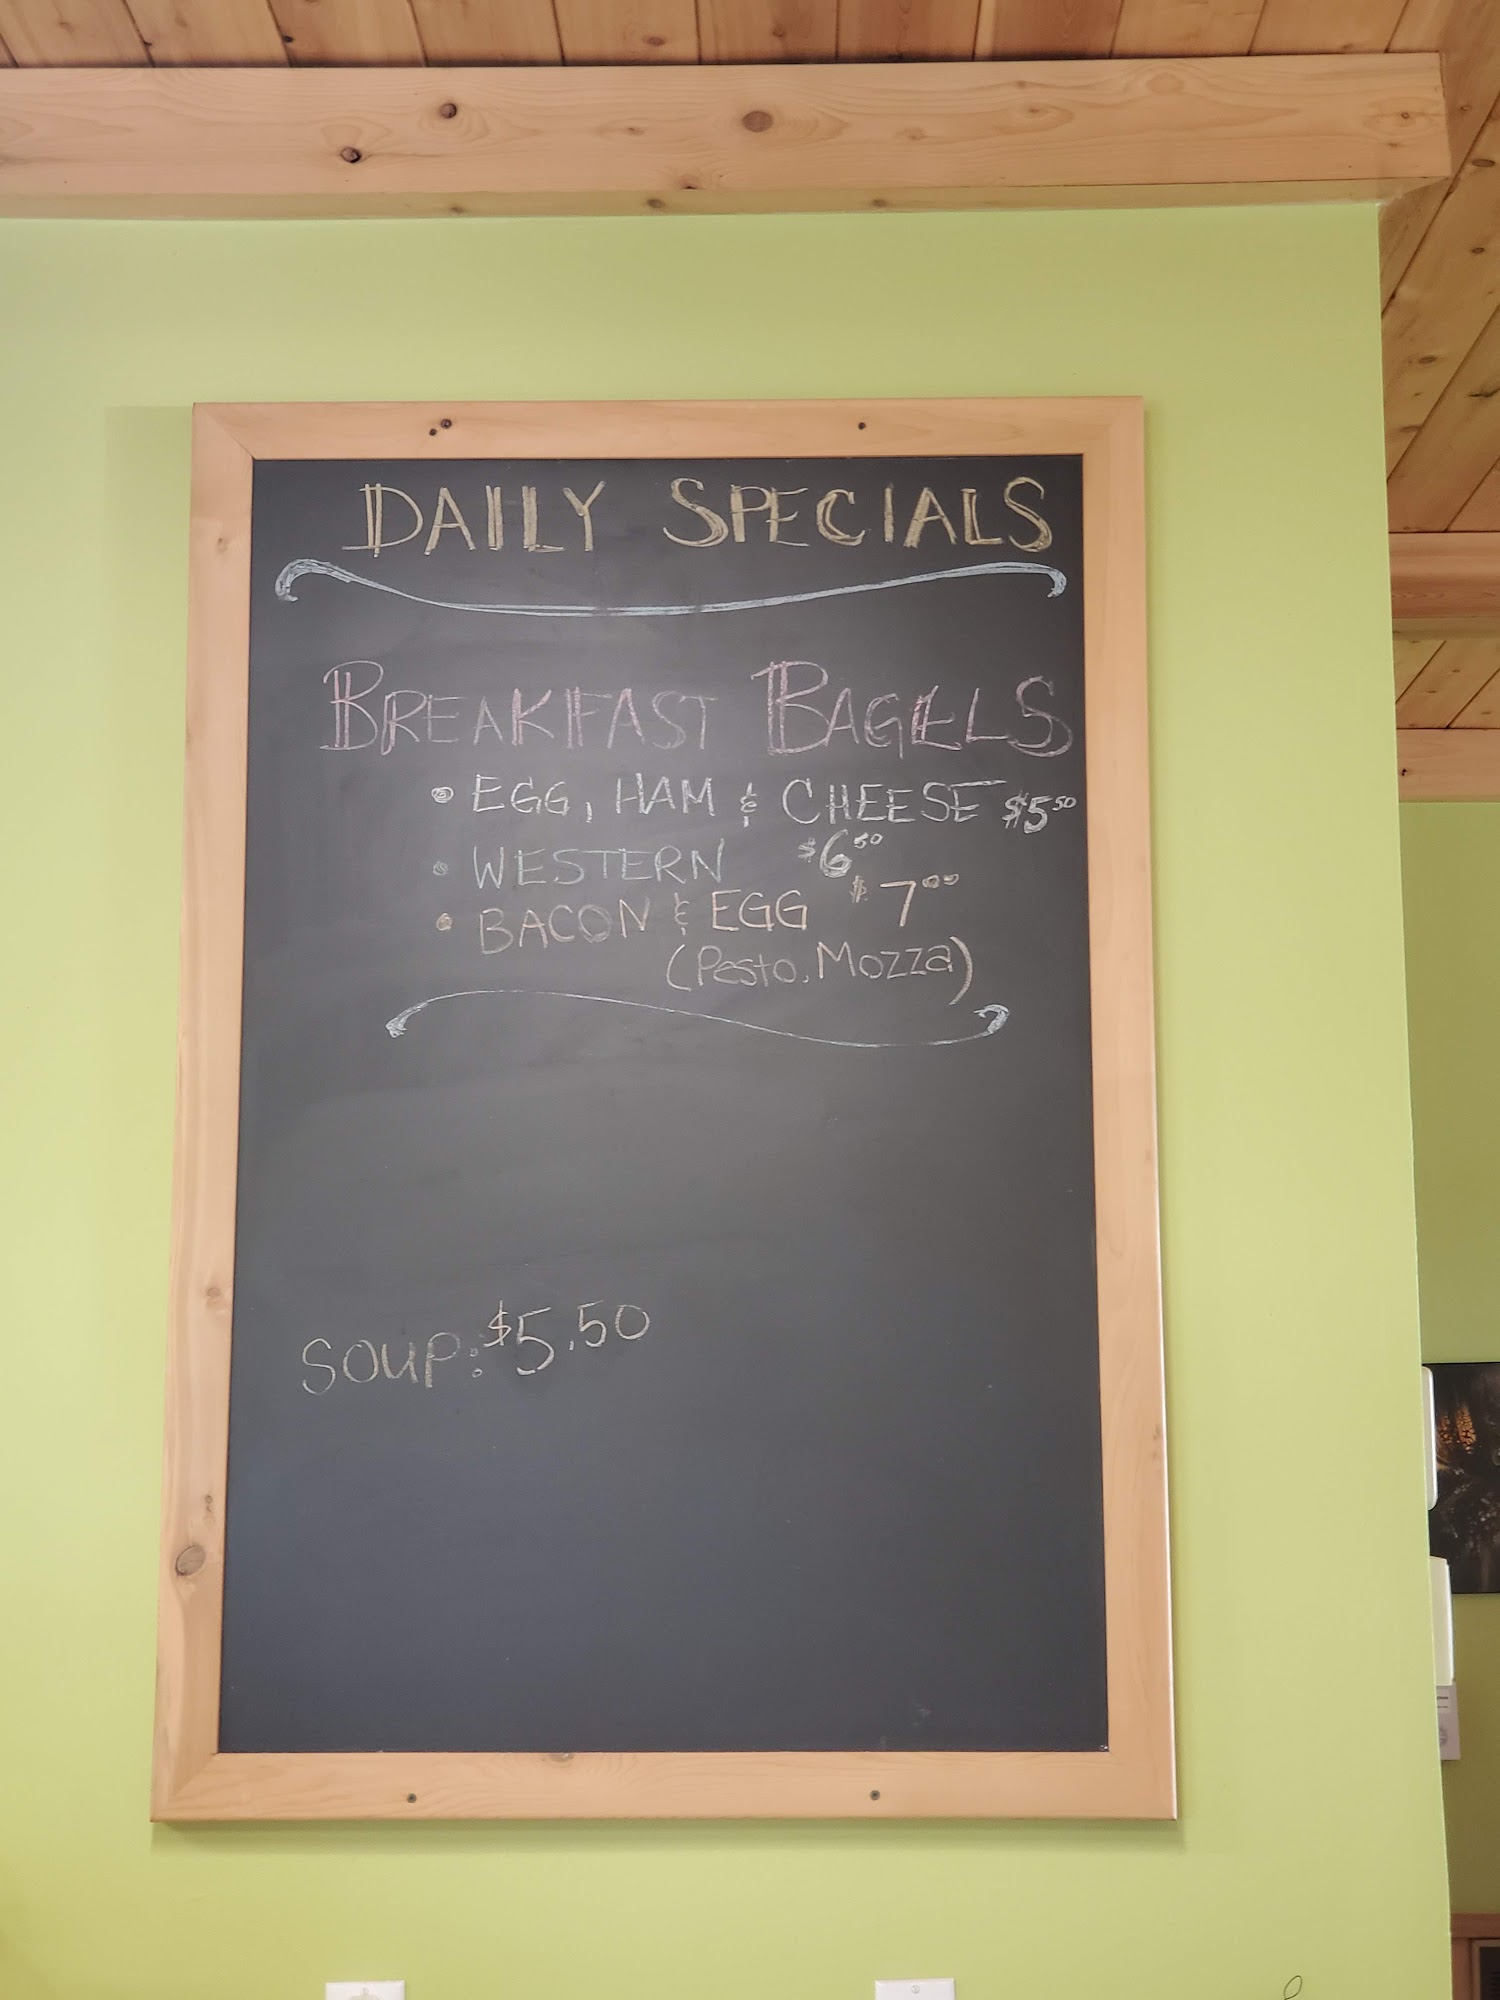 DAILY SPECIALS
BREAKFAST BAGELS
• EGG, HAM & CHEESE $5⁵⁰
• WESTERN $6⁵⁰
• BACON & EGG $7⁰⁰
(Pesto, Mozza)
SOUP: $5.50